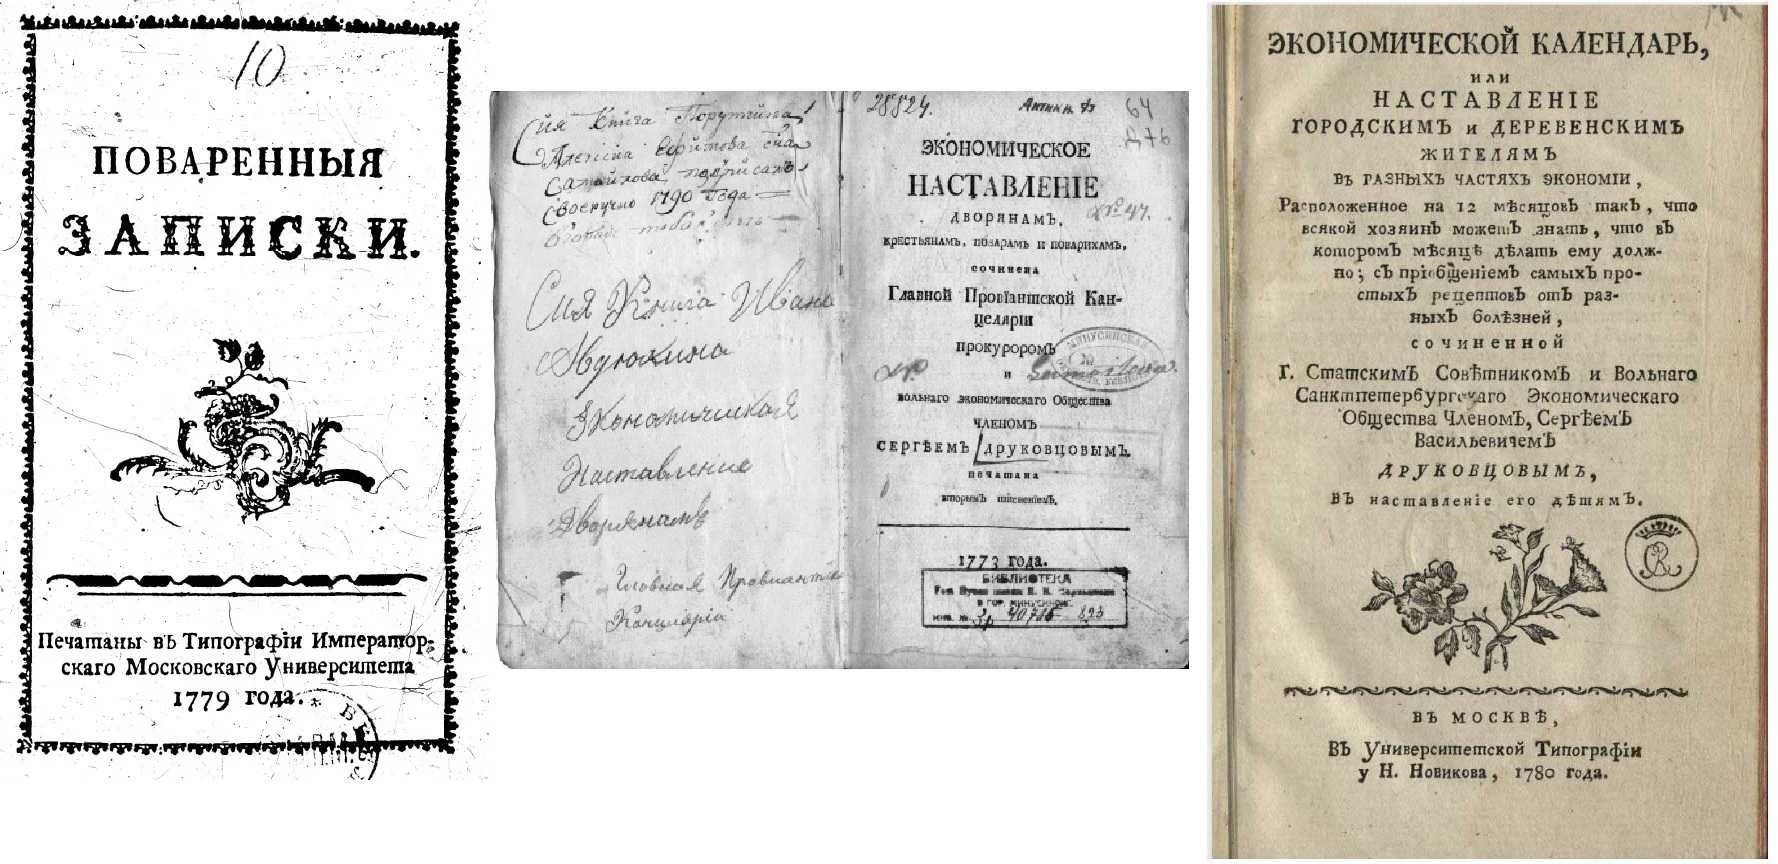 10
ПОВАРЕННЫЯ
ЗАПИСКИ.
Печатаны въ Типографіи Император-
скаго Московскаго Университета
1779 года.
Сия Книга
Алексѣя
1790 Года
Сия Книга Ивана
Авдюкина
Экономическая
Наставление
Дворянамъ
Главная Правиантъ
Канцларіи
28824.
64
ЭКОНОМИЧЕСКОЕ
НАСТАВЛЕНІЕ
ДВОРЯНАМЪ,
КРЕСТЬЯНАМЪ, ПОВАРАМЪ И ПОВАРИХАМЪ,
сочинена
Главной Провіантской Кан-
целяріи
прокуроромъ
и
вольнаго экономическаго Общества
членомъ
СЕРГѢЕМЪ ДРУКОВЦОВЫМЪ.
печатана
вторымъ тисненіемъ,
1773 года.
БИБЛИОТЕКА
40715
ЭКОНОМИЧЕСКОЙ КАЛЕНДАРЬ,
или
НАСТАВЛЕНІЕ
ГОРОДСКИМЪ и ДЕРЕВЕНСКИМЪ
ЖИТЕЛЯМЪ
ВЪ РАЗНЫХЪ ЧАСТЯХЪ ЭКОНОМІИ,
Расположенное на 12 мѣсяцовъ такъ, что
всякой хозяинъ можетъ знать, что въ
которомъ мѣсяцѣ дѣлать ему долж-
но; съ пріобщеніемъ самыхъ про-
стыхъ рецептовъ отъ раз-
ныхъ болѣзней,
сочиненной
Г. Статскимъ Совѣтникомъ и Вольнаго
Санктпетербургскаго Экономическаго
Общества Членомъ, Сергѣемъ
Васильевичемъ
ДРУКОВЦОВЫМЪ,
въ наставленіе его дѣтямъ.
ВЪ МОСКВѢ,
Въ Университетской Типографіи
у Н. Новикова, 1780 года.